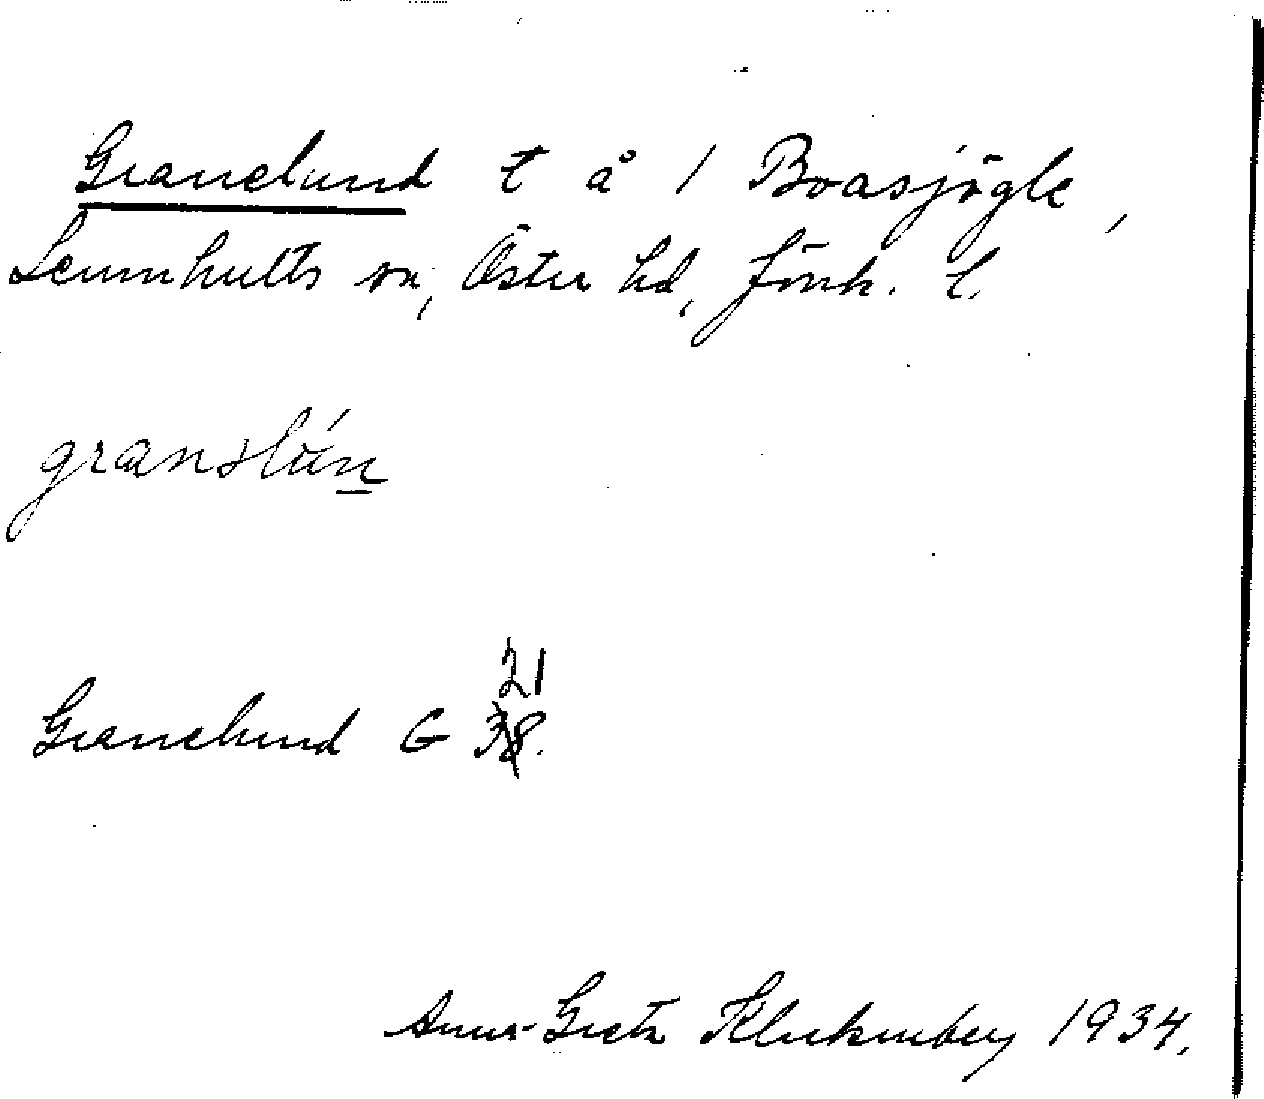 Granelund t å 1 Boasjögle,
Lemnhults sn, Östra hd, Jönk. l.
granəlún
21
Granelund G 38.
Anna-Greta Klickenberg 1934.